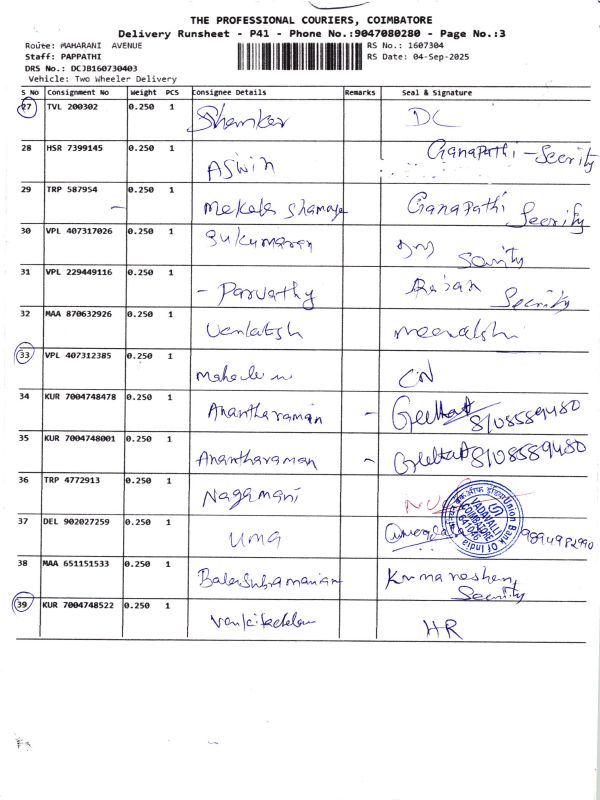 THE PROFESSIONAL COURIERS, COIMBATORE
Delivery Runsheet - P41 - Phone No.:9047080280 - Page No.:3
Route: MAHARANI AVENUE RS No.: 1607304
Staff: PAPPATHI RS Date: 04-Sep-2025
DRS No.: DCJB160730403
Vehicle: Two Wheeler Delivery
S No Consignment No Weight PCS Consignee Details Remarks Seal & Signature
27 TVL 200302 0.250 1 Shankar DC
28 HSR 7399145 0.250 1 Aswin Ganapathi - Secrity
29 TRP 587954 0.250 1 Ganapathi Secrity
30 VPL 407317026 0.250 1 Sukumaran
31 VPL 229449116 0.250 1 - Parvathy Rajan Secrity
32 MAA 870632926 0.250 1 Venkatsh meenakshi
33 VPL 407312385 0.250 1 CN
34 KUR 7004748478 0.250 1 Anantharaman - Geetha 8108589480
35 KUR 7004748001 0.250 1 Anantharaman - Geetha 8108589480
36 TRP 4772913 0.250 1 Nagamani
Union Bank Of India
VADAVALLI
COIMBATORE
641046
37 DEL 902027259 0.250 1 Uma 9894982990
38 MAA 651151533 0.250 1 Balasubramaniam Kumareshen Secrity
39 KUR 7004748522 0.250 1 HR